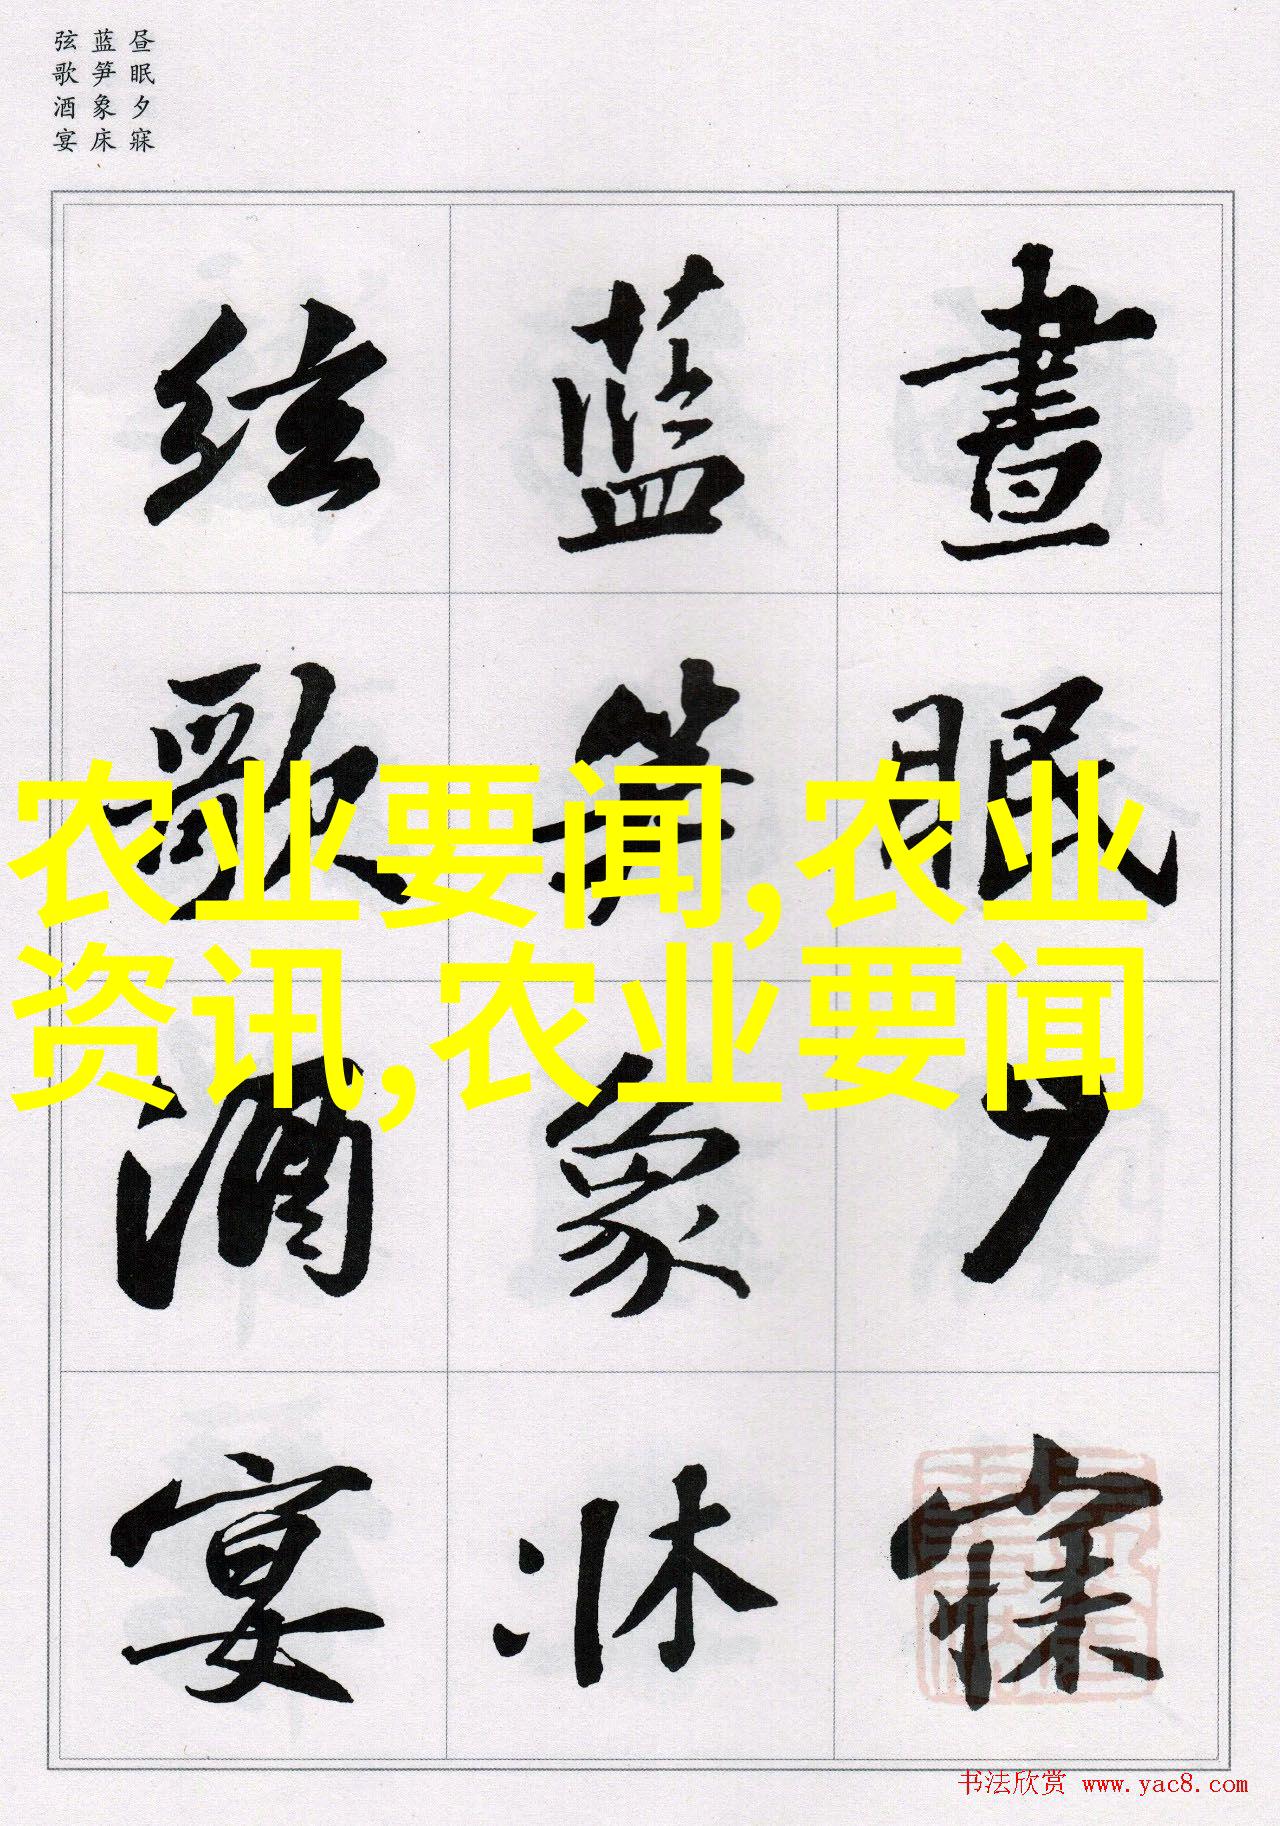 昼眠夕寐
蓝笋象床
弦歌酒宴
晝眠夕寐
蓝笋象牀
弦歌酒宴
农业要闻,农业
资讯,农业要闻
书法欣赏 www.yac8.com